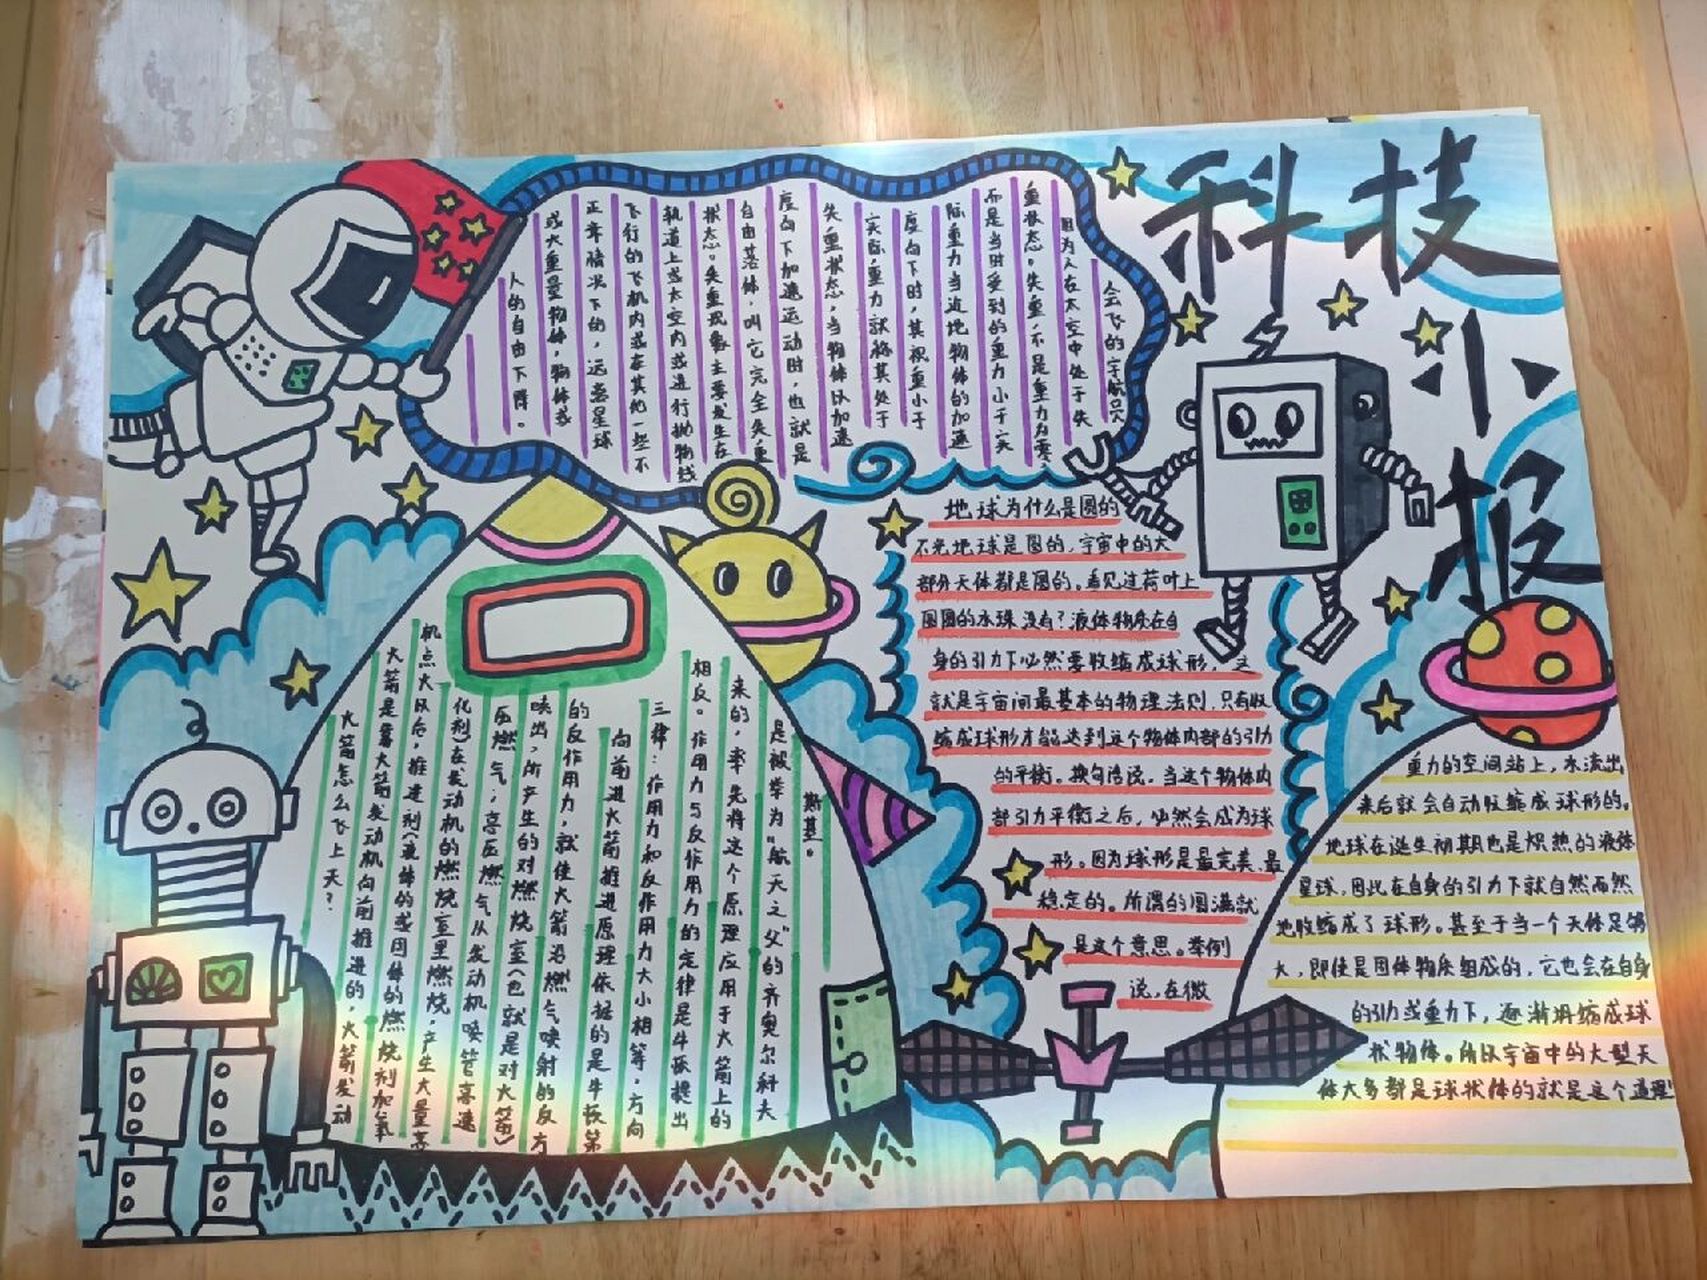 科技
小
报
会飞的宇航员
因为人在太空中处于失
重状态。失重,不是重力为零,
而是当时受到的重力小于实
际重力当近地物体的加速
度向下时,其视重小于
实际重力就称其处于
失重状态,当物体以加速
度向下加速运动时,也就是
自由落体,叫它完全失重
状态。失重现象主要发生在
轨道上或太空内或进行抛物线
飞行的飞机内或在其他一些不
正常情况下的,远离星球
或大重量物体,物体或
人的自由下降。
火箭怎么飞上天?
火箭是靠火箭发动机向前推进的,火箭发动
机点火以后,推进剂(液体的或固体的燃烧剂加氧
化剂)在发动机的燃烧室里燃烧,产生大量高
压燃气;高压燃气从发动机喷管高速
喷出,所产生的对燃烧室(也就是对火箭)
的反作用力,就使火箭沿燃气喷射的反方
向前进火箭推进原理依据的是牛顿第
三律:作用力和反作用力大小相等,方向
相反。作用力与反作用力的定律是牛顿提出
来的,率先将这个原理应用于火箭上的
是被举为“航天之父”的齐奥尔科夫
斯基。
地球为什么是圆的
不光地球是圆的,宇宙中的大
部分天体都是圆的。看见过荷叶上
圆圆的水珠没有?液体物质在自
身的引力下必然要收缩成球形,这
就是宇宙间最基本的物理法则,只有收
缩成球形才能达到这个物体内部的引力
的平衡。换句话说,当这个物体内
部引力平衡之后,必然会成为球
形。因为球形是最完美、最
稳定的。所谓的圆满就
是这个意思。举例
说,在微
重力的空间站上,水流出
来后就会自动收缩成球形的。
地球在诞生初期也是炽热的液体
星球,因此在自身的引力下就自然而然
地收缩成了球形。甚至于当一个天体足够
大,即使是固体物质组成的,它也会在自身
的引力或重力下,逐渐坍缩成球
状物体。所以宇宙中的大型天
体大多都是球状体的就是这个道理